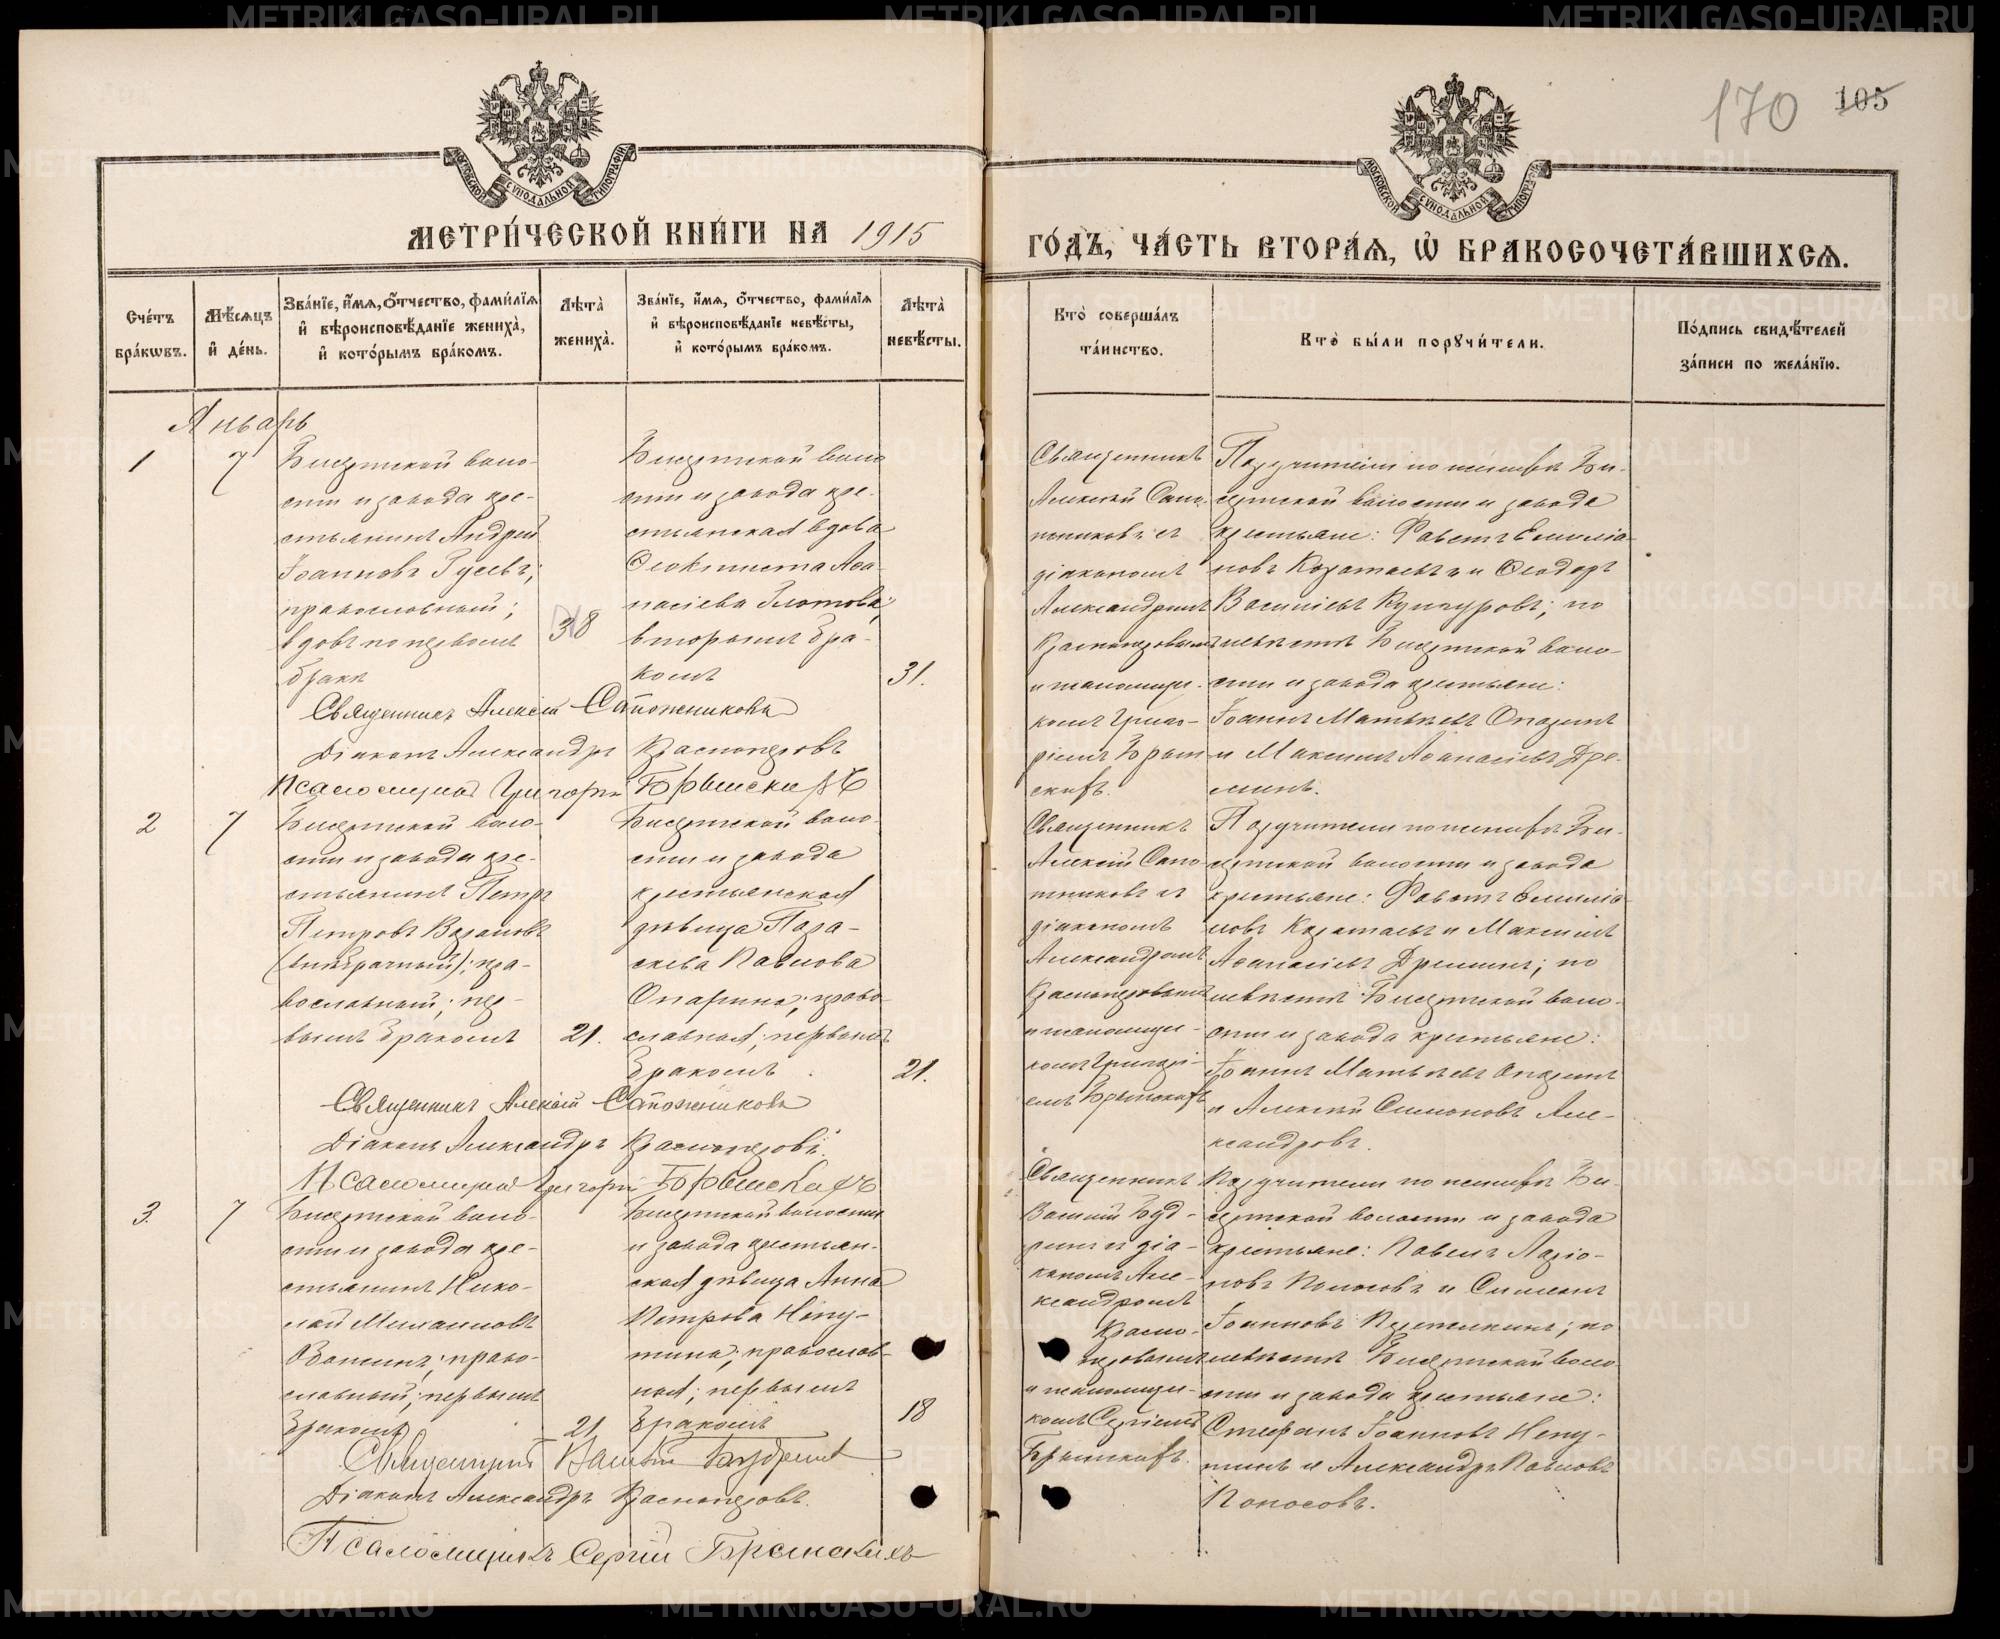 170
105
МОСКОВСКОЙ СѴНОДАЛЬНОЙ ТИПОГРАФІИ
МОСКОВСКОЙ СѴНОДАЛЬНОЙ ТИПОГРАФІИ
МЕТРИ́ЧЕСКОЙ КНИ́ГИ НА 1915
ГО́ДЪ, ЧА́СТЬ ВТОРА́Ѧ, Ѽ БРАКОСОЧЕТА́ВШИХСѦ.
Сче́тъ бра́кѡвъ.
Мѣ́сѧцъ и҆ де́нь.
Зва́нїе, и҆́мѧ, ѻ҆́тчество, фами́лїѧ
и҆ вѣроисповѣ́данїе жениха̀,
и҆ кото́рымъ бра́комъ.
Лѣ̀та жениха̀.
Зва́нїе, и҆́мѧ, ѻ҆́тчество, фами́лїѧ
и҆ вѣроисповѣ́данїе невѣ́сты,
и҆ кото́рымъ бра́комъ.
Лѣ̀та невѣ́сты.
Кто̀ соверша́лъ
та́инство.
Кто̀ бы́ли порꙋчи́тели.
По́дпись свидѣ́телей
за́писи по жела́нїю.
Январь
1
7
Бисертской воло-
сти и завода кре-
стьянинъ Андрей
Іоанновъ Гусевъ;
православный;
вдовъ по первомъ
бракѣ
38
Бисертской воло
сти и завода кре-
стьянская вдова
Ѳеоктиста Аѳа-
насіева Глотова;
вторымъ бра-
комъ
31.
Священникъ
Алексій Сапо-
жниковъ съ
діакономъ
Александромъ
Краснопѣровымъ
и псаломщи-
комъ Григо-
ріемъ Брын
скихъ.
Поручители по женихѣ Би-
сертской волости и завода
крестьяне: Фавстъ Емиліа-
новъ Козатаевъ и Ѳеодоръ
Васильевъ Кунгуровъ; по
невѣстѣ Бисертской воло-
сти и завода крестьяне:
Іоаннъ Матвѣевъ Опаринъ
и Максимъ Аѳанасіевъ Дре-
минъ.
Священникъ Алексій Сапожниковъ
Діаконъ Александръ Краснопѣровъ
Псаломщикъ Григорій Брынскихъ
2
7
Бисертской воло-
сти и завода кре-
стьянинъ Петръ
Петровъ Варановъ
(внѣбрачный); пра-
вославный; пер-
вымъ бракомъ
21.
Бисертской воло-
сти и завода
крестьянская
дѣвица Пара-
скева Павлова
Опарина; право-
славная; первымъ
бракомъ
21.
Священникъ
Алексій Сапо
жниковъ съ
діакономъ
Александромъ
Краснопѣровымъ
и псаломщи-
комъ Григорі-
емъ Брынскихъ
Поручители по женихѣ Би-
сертской волости и завода
крестьяне: Фавстъ Емиліа-
новъ Козатаевъ и Максимъ
Аѳанасіевъ Дреминъ; по
невѣстѣ Бисертской воло-
сти и завода крестьяне:
Іоаннъ Матвѣевъ Опаринъ
и Алексій Симоновъ Але-
ксандровъ.
Священникъ Алексій Сапожниковъ
Діаконъ Александръ Краснопѣровъ.
Псаломщикъ Григорій Брынскихъ
3.
7
Бисертской воло-
сти и завода кре-
стьянинъ Нико-
лай
православный; первымъ
бракомъ
21
Бисертской волости
и завода крестьян-
ская дѣвица Анна
Петрова Непу-
тина; православ-
ная; первымъ
бракомъ
18
Священникъ
Василій Буд-
ринъ съ діа-
кономъ Але-
ксандромъ
Красно-
пѣровымъ
и псаломщи-
комъ Сергіемъ
Брынскихъ.
Поручители по женихѣ Би-
сертской волости и завода
крестьяне: Павелъ Ларіо-
новъ Поносовъ и Симеонъ
Іоанновъ; по
невѣстѣ Бисертской воло-
сти и завода крестьяне:
Стефанъ Іоанновъ Непу-
тинъ и Александръ Павловъ
Поносовъ.
Священникъ Василій Будринъ
Діаконъ Александръ Краснопѣровъ.
Псаломщикъ Сергій Брынскихъ
METRIKI.GASO-URAL.RU